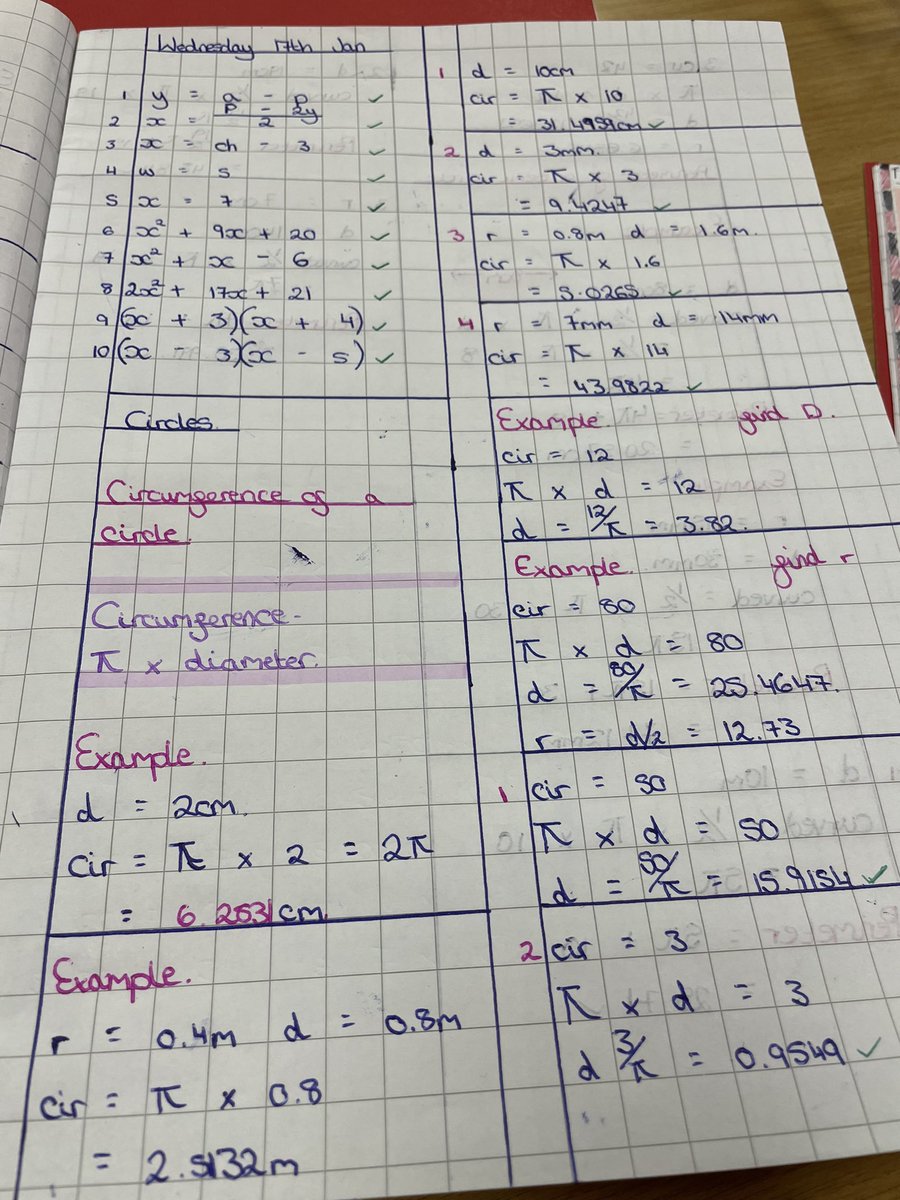 Wednesday 17th Jan
1 y = a - p
2 x = p = 2y / 2
3 x = ch - 3
4 w = 5
5 x = 7
6 x² + 9x + 20
7 x² + x - 6
8 2x² + 17x + 21
9 (x + 3)(x + 4)
10 (x - 3)(x - 5)
Circles
Circumference of a
circle.
Circumference -
π x diameter.
Example.
d = 2cm.
cir = π x 2 = 2π
= 6.2531cm.
Example.
r = 0.4m d = 0.8m
cir = π x 0.8
= 2.5132m
1 d = 10cm
cir = π x 10
= 31.4959cm
2 d = 3mm.
cir = π x 3
= 9.4247
3 r = 0.8m d = 1.6m.
cir = π x 1.6
= 5.0265
4 r = 7mm d = 14mm
cir = π x 14
= 43.9822
Example. find D.
cir = 12
π x d = 12
d = 12/π = 3.82.
Example. find r
cir = 80
π x d = 80
d = 80/π = 25.4647.
r = d/2 = 12.73
1 cir = 50
π x d = 50
d = 50/π = 15.9154
2 cir = 3
π x d = 3
d 3/π = 0.9549